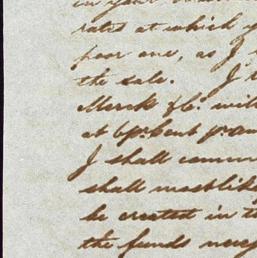 in your
rates at which y
poor one, as I
the sale. I
Merck & Co. will
at 6 pr. cent pr. an
I shall commu
shall most lik
be created in t
the funds nece